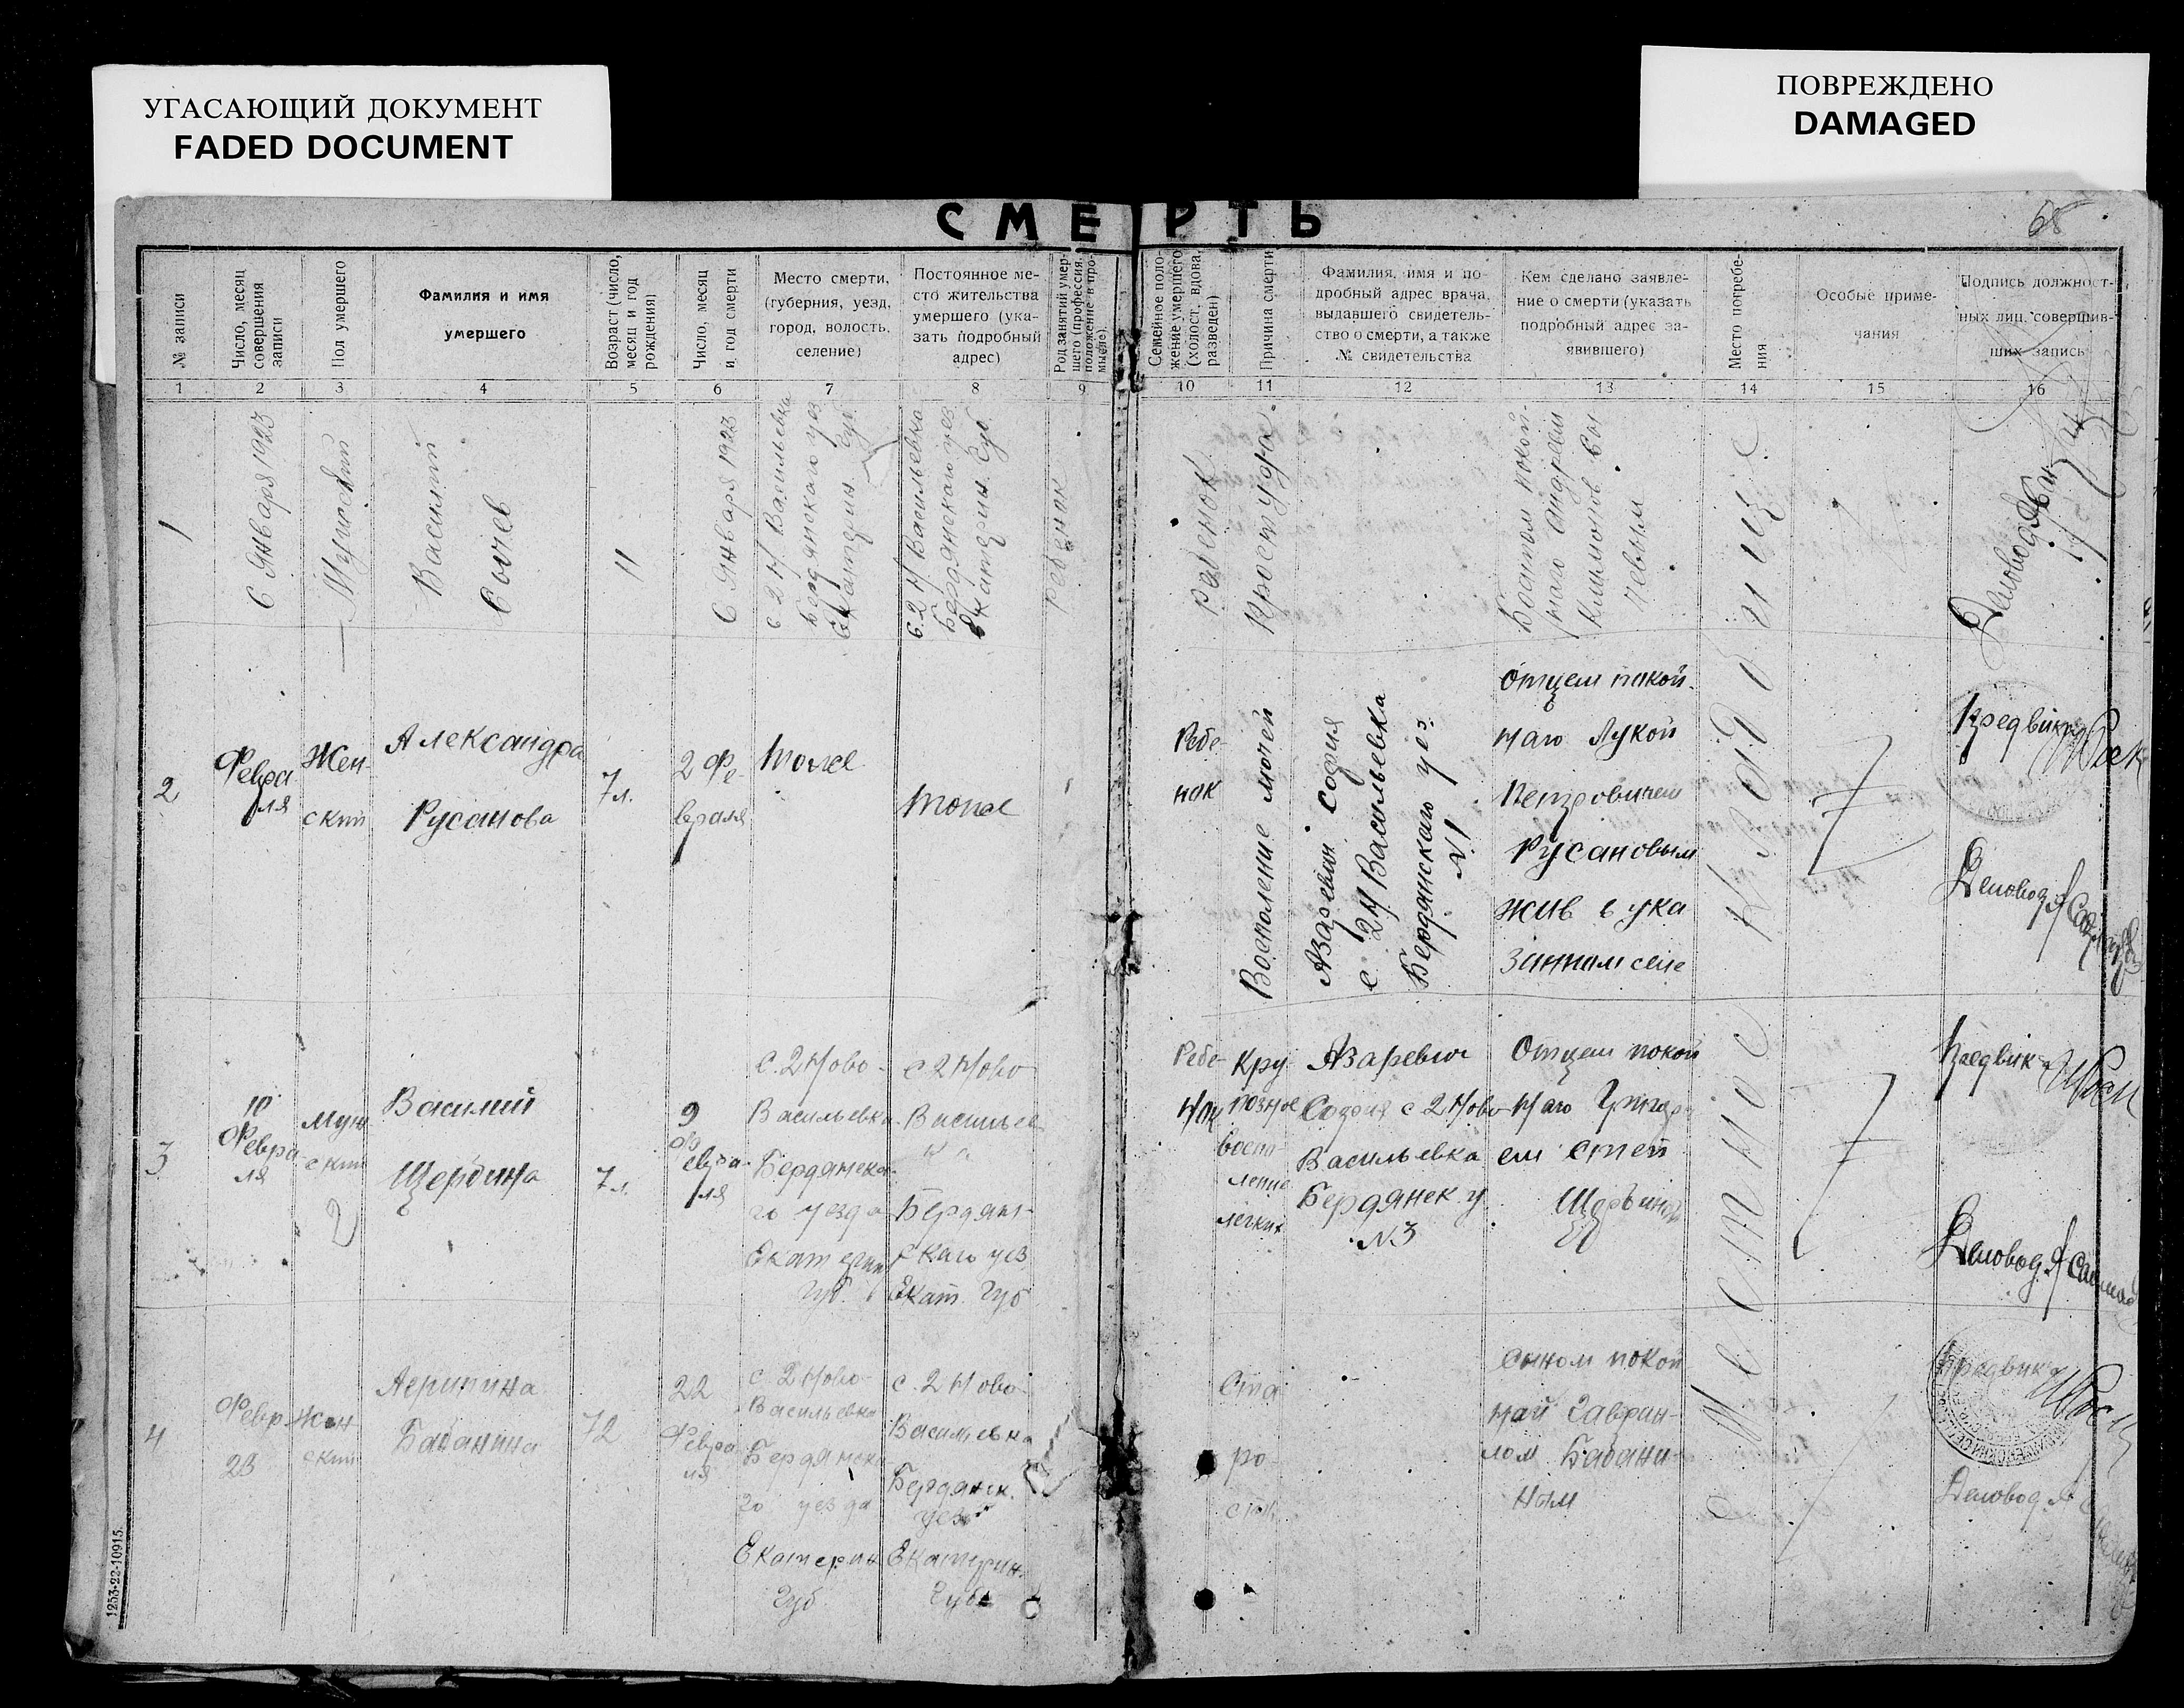 УГАСАЮЩИЙ ДОКУМЕНТ
FADED DOCUMENT
ПОВРЕЖДЕНО
DAMAGED
СМЕРТЬ
68
№ записи
Число, месяц
совершения
записи
Пол умершего
Фамилия и имя
умершего
Возраст (число,
месяц и год
рождения)
Число, месяц
и год смерти
Место смерти,
(губерния, уезд,
город, волость,
селение)
Постоянное ме-
сто жительства
умершего (ука-
зать подробный
адрес)
Род занятий умер-
шего (профессия,
положение в про-
мысле).
Семейное поло-
жение умершего
(холост, вдова,
разведен)
Причина смерти
Фамилия, имя и по-
дробный адрес врача,
выдавшего свидетель-
ство о смерти, а также
№ свидетельства
Кем сделано заявле-
ние о смерти (указать
подробный адрес за-
явившего)
Место погребе-
ния
Особые приме-
чания
Подпись должност-
ных лиц, совершив-
ших запись
1 2 3 4 5 6 7 8 9 10 11 12 13 14 15 16
1
6 Января 1923
Мужский
Василий
Сычев
11
6 Января 1923
с. 2 Н Васильевка
Бердянского уез
Екатерин. Губ.
с. 2 Н Васильевка
Бердянского уез
Екатерин. Губ.
ребенок
ребенок
Простуда
Братом покой-
наго Андреем
Кладбище
2
Февра
ля
Жен-
ский
Александра
Русанова
7 л.
2 Фе-
враля
тоже
тоже
Ребе-
нок
Воспаление мочей
Азаревич София
с. 2 Н Васильевка
Бердянскаго уез.
№ 1
Отцем покой.
наго Лукой
Петровичем
Русановым
жив в ука
занном селе
Предвик
Деловод.
3
10
Февра
ля
Муж
ский
Василий
Щербина
7 л.
9
Февра-
ля
с. 2 Ново-
Васильевка
Бердянска-
го уезда
Екатерин
Губ.
с 2 Ново
Васильев
ка
Бердян-
скаго уез
Екат. Губ
Ребе-
нок
Кру
позное
восп-
ление
легких
Азаревич
София с 2 Ново
Васильевка
Бердянск у
№ 3
Отцем покой
наго
Местное
Предвик
Деловод.
4
Февр
23
Жен
ский
Агрипина
Бабанина
72
22
Февра
ля
с 2 Ново-
Васильевка
Бердянска
го уезда
Екатерин
Губ
с. 2 Ново
Васильевка
Бердянск.
уез
Екатерин.
Губ
Ста
ро
сть
Сыном покой
ной Гаври-
лом Бабани-
ным
Предвик
Деловод.
1253-22-10915.